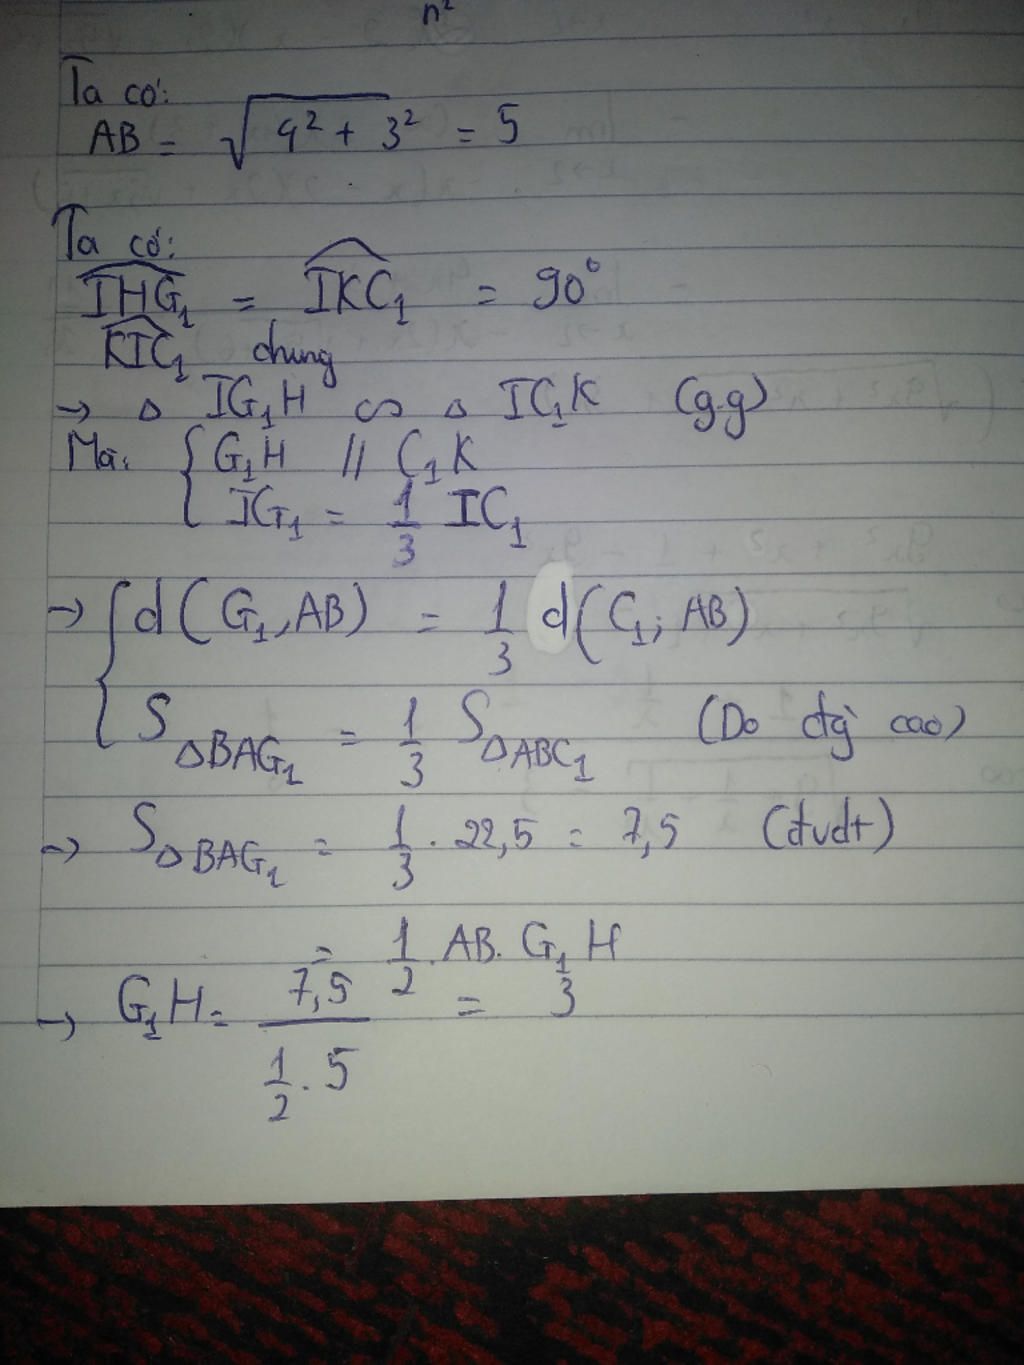 n²
Ta có:
AB = √(4² + 3²) = 5
Ta có:
IHG₁ = IKC₁ = 90°
KIC₁ chung
→ Δ IG₁H ∽ Δ IC₁K (g.g)
Mà: { G₁H // C₁K
IG₁ = 1/3 IC₁
→ { d(G₁, AB) = 1/3 d(C₁; AB)
S ΔBAG₁ = 1/3 S ΔABC₁ (Do đg` cao)
→ S ΔBAG₁ = 1/3 . 22,5 = 7,5 (đvdt)
= 1/2 . AB . G₁H
→ G₁H = 7,5 / (1/2 . 5) = 3